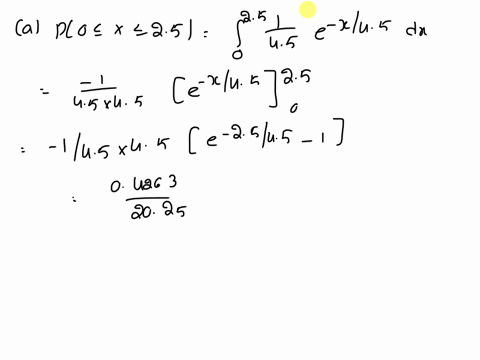 (a) P(0 ≤ x ≤ 2.5) = ∫₀^2.5 1/4.5 e^{-x/4.5} dx
= -1/4.5×4.5 [e^{-x/4.5}]₀^2.5
= -1/4.5×4.5 [e^{-2.5/4.5} - 1]
= /20.25